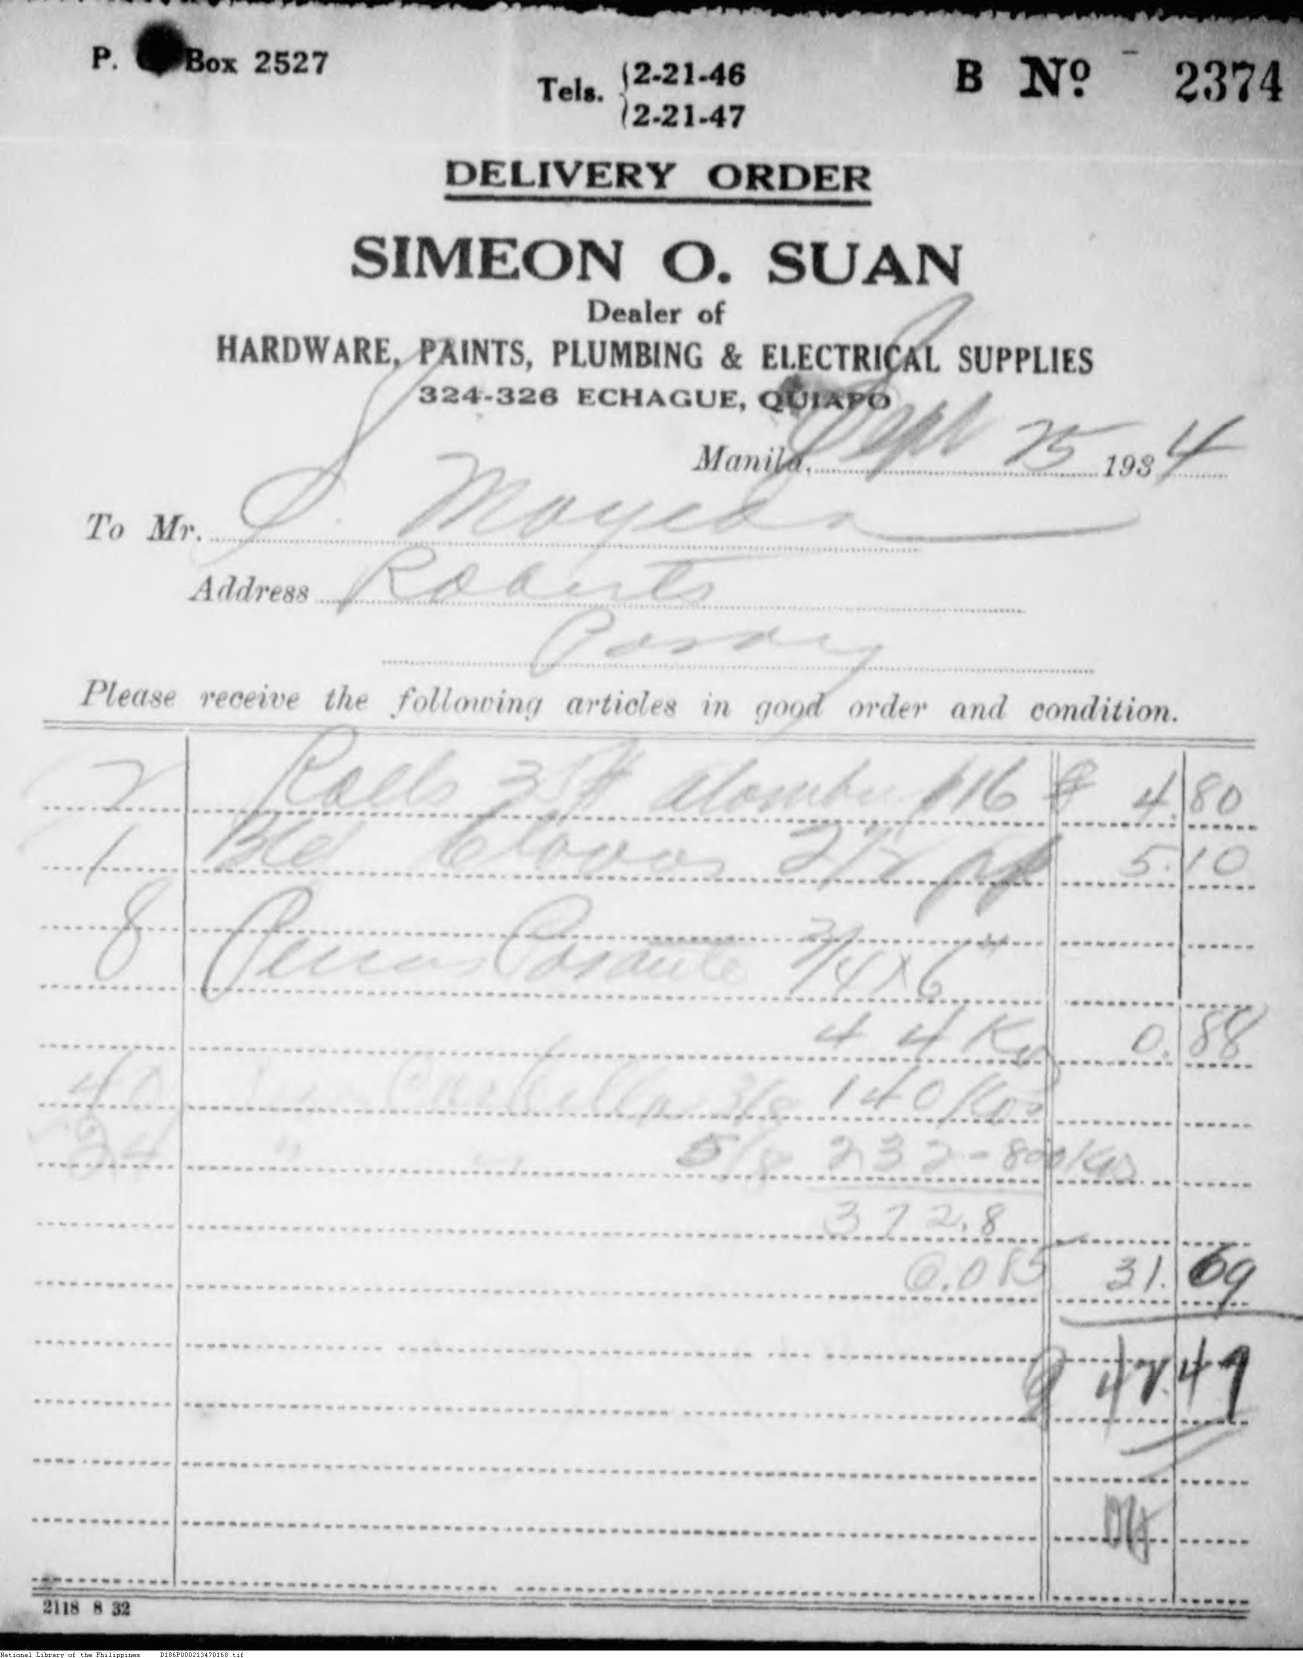 P. Box 2527
Tels. 2-21-46
2-21-47
B No. 2374
DELIVERY ORDER
SIMEON O. SUAN
Dealer of
HARDWARE, PAINTS, PLUMBING & ELECTRICAL SUPPLIES
324-326 ECHAGUE, QUIAPO
Manila, Sept 25 1934
To Mr. S. Mayeda
Address Roberts
Pasay
Please receive the following articles in good order and condition.
2 Rolls #16 4.80
1 Bld Clavos 2 1/2 5.10
8 Pernos 3/4 x 6"
44 Ks 0.88
40 Cabilla 3/8 140 Kos
24 " " 5/8 232-800 Kos
372.8
@.085 31.69
42.47
2118 8 32
National Library of the Philippines D186P000213470168.tif